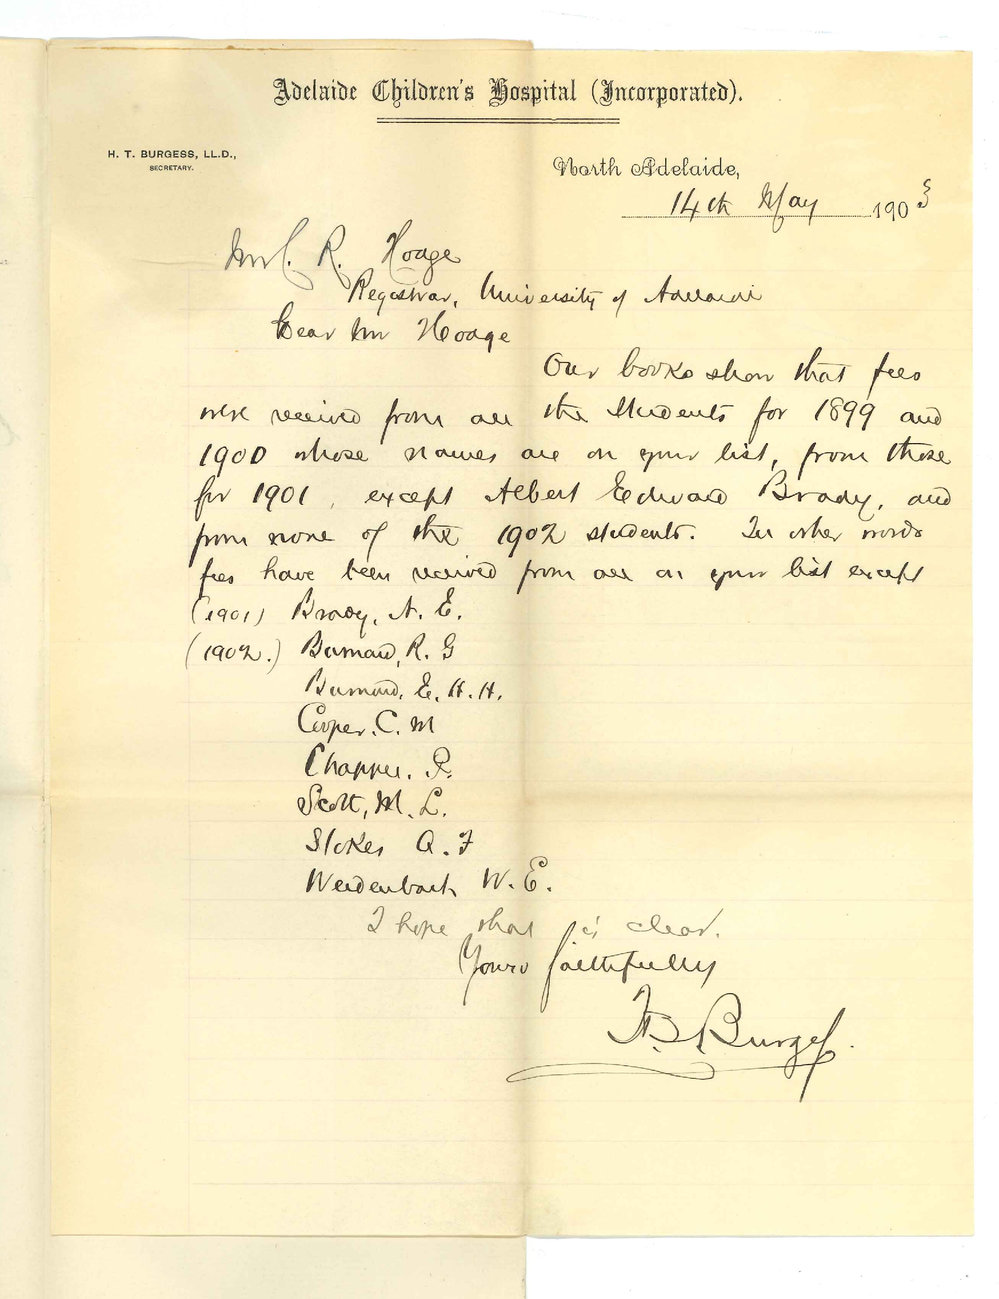 Adelaide Children's Hospital (Incorporated).
H. T. BURGESS, LL.D.,
SECRETARY.
North Adelaide,
14th May 1903
Mr C. R. Hodge
Registrar, University of Adelaide
Dear Mr Hodge
Our books show that fees
were received from all the Students for 1899 and
1900 whose names are on your list, from those
for 1901, except Albert Edward Brady, and
from none of the 1902 students. In other words
fees have been received from all on your list except
(1901) Brady, A. E.
(1902.) Burnard, R. G
Burnard, E. H. H.
Cooper, C. M
Chapple, P.
Scott, M. L.
Stokes A. F
Weidenbach W. E.
I hope that is clear.
Yours faithfully
H. T. Burgess.